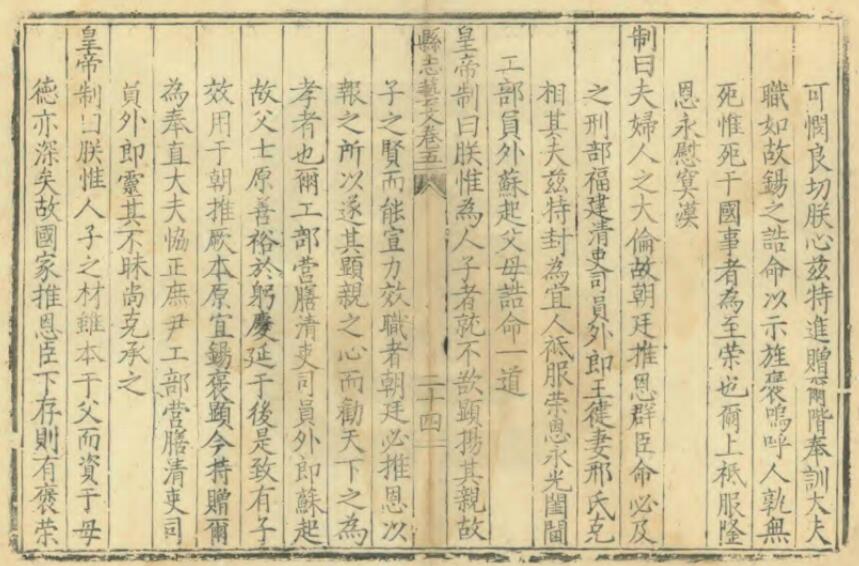 可憫良切朕心茲特進贈爾階奉訓大夫
職如故錫之誥命以示旌褒嗚呼人孰無
死惟死于國事者為至荣也爾上袛服隆
恩永慰冥漠
制曰夫婦人之大倫故朝廷推恩群臣命必及
之刑部福建清吏司員外郎王徤妻邢氏克
相其夫茲特封為宜人袛服荣恩永光閨閫
工部員外蘇起父母誥命一道
皇帝制曰朕惟為人子者孰不欲顯揚其親故
縣志藝文卷五
二十四
子之賢而能宣力效職者朝廷必推恩以
報之所以遂其顯親之心而勸天下之為
孝者也爾工部營膳清吏司員外郎蘇起
故父士原善裕於躬慶延于後是致有子
效用于朝推厥本原宜錫褒顯今特贈爾
為奉直大夫恊正庶尹工部營膳清吏司
員外郎靈其不昧尚克承之
皇帝制曰朕惟人子之材雖本于父而資于母
徳亦深矣故國家推恩臣下存則有褒荣